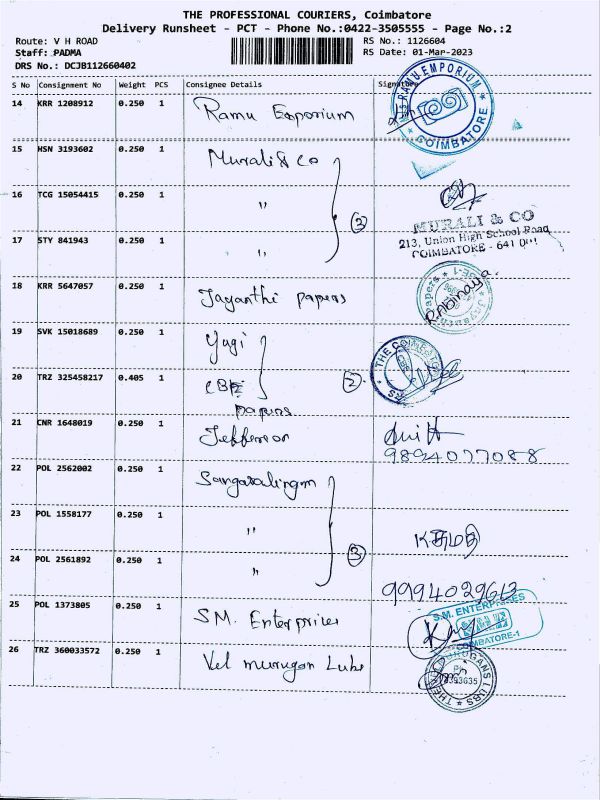 THE PROFESSIONAL COURIERS, Coimbatore
Delivery Runsheet - PCT - Phone No.:0422-3505555 - Page No.:2
Route: V H ROAD RS No.: 1126604
Staff: PADMA RS Date: 01-Mar-2023
DRS No.: DCJB112660402
S No Consignment No Weight PCS Consignee Details Signature
14 KRR 1208912 0.250 1 Ramu Emporium
RAMU EMPORIUM
COIMBATORE
15 NSN 3193602 0.250 1 Murali & Co
16 TCG 15054415 0.250 1 "
3
MURALI & CO
213, Union High School Road,
COIMBATORE - 641 001
17 STY 841943 0.250 1 "
18 KRR 5647057 0.250 1 Jayanthi papers
Jayanthi Papers
R. Abinaya
19 SVK 15018689 0.250 1 Yugi
THE COIMBATORE
20 TRZ 325458217 0.405 1 CBE 2
papers
21 CNR 1648019 0.250 1 Jefferson
9894077088
22 POL 2562002 0.250 1 Sangaralingm
23 POL 1558177 0.250 1 "
3
24 POL 2561892 0.250 1 "
9994029613
25 POL 1373805 0.250 1 S.M. Enterprises
S.M. ENTERPRISES
COIMBATORE-1
26 TRZ 360033572 0.250 1 Vel murugan Lube